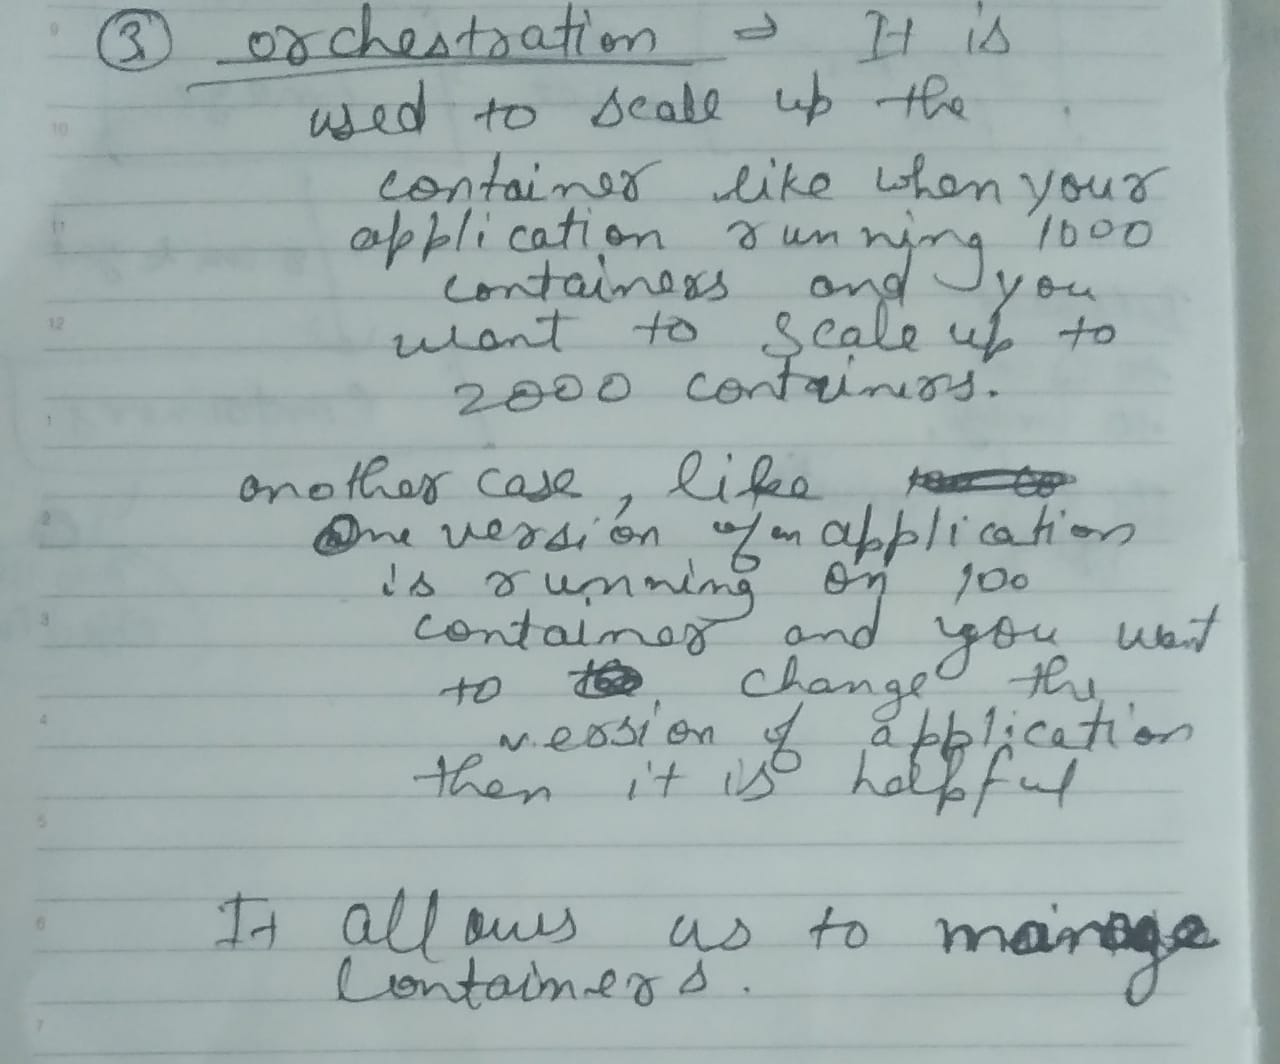 ③ orchestration → It is
used to scale up the
container like when your
application running 1000
containers and you
want to scale up to
2000 containers.
another case, like
One version of an application
is running on 100
container and you want
to change the
version of application
then it is helpful
It allows us to manage
Containers.
9
10
11
12
1
2
3
4
5
6
7